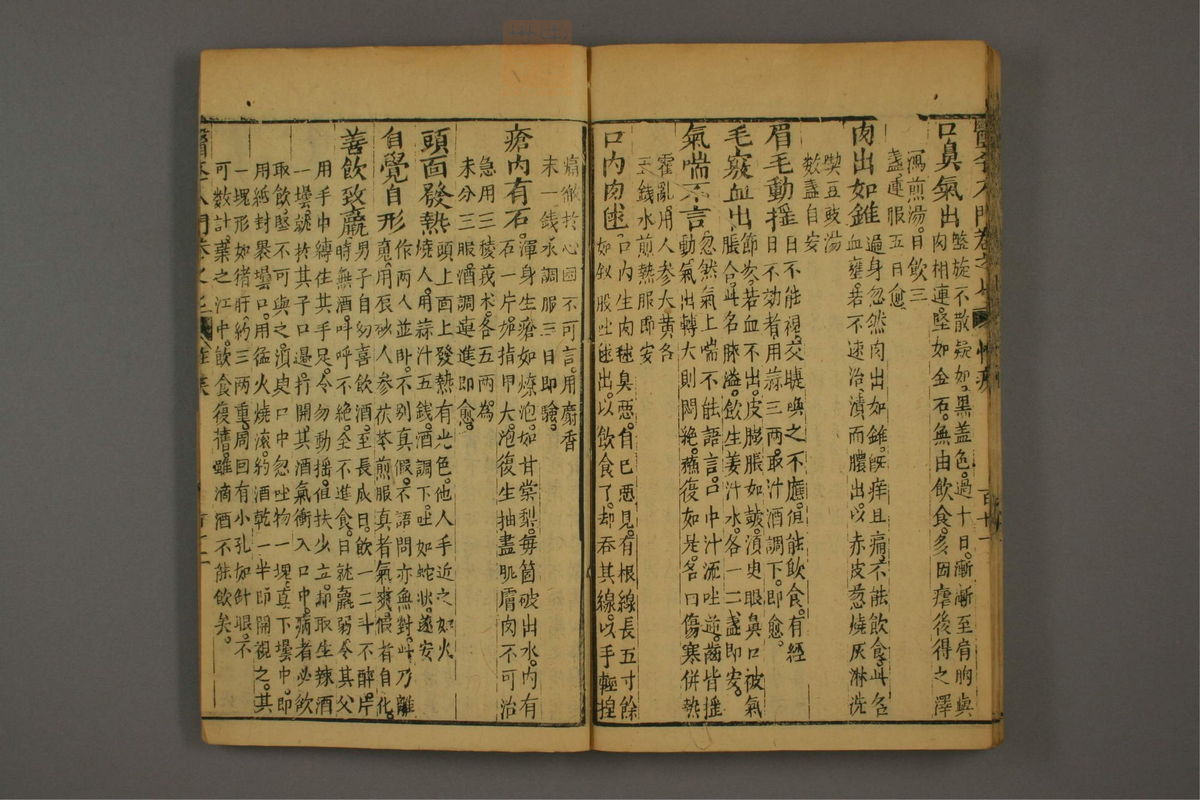 口鼻氣出
盤旋不散凝如黑盖色過十日漸漸至肩胸與
肉相連堅如金石無由飲食多因瘧後得之澤
瀉煎湯日飲三
盞連服五日愈
肉出如錐
遍身忽然肉出如錐既痒且痛不能飲食此名
血壅若不速治潰而膿出以赤皮葱燒灰淋洗
喫豆豉湯
數盞自安
眉毛動揺
目不能視交睫喚之不應但能飲食有經
日不効者用蒜三兩取汁酒調下即愈
毛竅血出
節次若血不出皮膨脹如皷湏㬰眼鼻口被氣
脹合此名脉溢飲生姜汁水各一二盞即安
氣喘不言
忽然氣上喘不能語言口中汁流吐逆齒皆揺
動氣出轉大則悶絶蘓復如是名曰傷寒併熱
霍亂用人参大黄各
五錢水煎熱服即安
口内肉毬
口内生肉毬臭惡自已惡見有根線長五寸餘
如釵股吐毬出以飲食了却吞其線以手輕揑
痛徹於心困不可言用麝香
末一錢水調服三日即驗
瘡内有石
渾身生瘡如燎泡如甘棠梨每箇破出水内有
石一片如指甲大泡復生抽盡肌膚肉不可治
急用三稜莪术各五兩為
末分三服酒調連進即愈
頭面發熱
頭上面上發熱有光色他人手近之如火
燒人用蒜汁五錢酒調下吐如蛇狀遂安
自覺自形
作兩人並卧不别真假不語問亦無對此乃離
䰟用辰砂人参茯苓煎服真者氣爽假者自化
善飲致羸
男子自幼喜飲酒至長成日飲一二斗不醉片
時無酒呌呼不絶全不進食日就羸弱令其父
用手巾縛住其手足令勿動揺但扶少立却取生辣酒
一壜就於其子口邊打開其酒氣衝入口中病者必欲
取飲堅不可與之湏㬰口中忽吐物一塊直下壜中即
用紙封裹壜口用猛火燒滚約酒乾一半即開視之其
一塊形如猪肝約三兩重周回有小孔如針眼不
可數計棄之江中飲食復舊雖滴酒不能飲矣